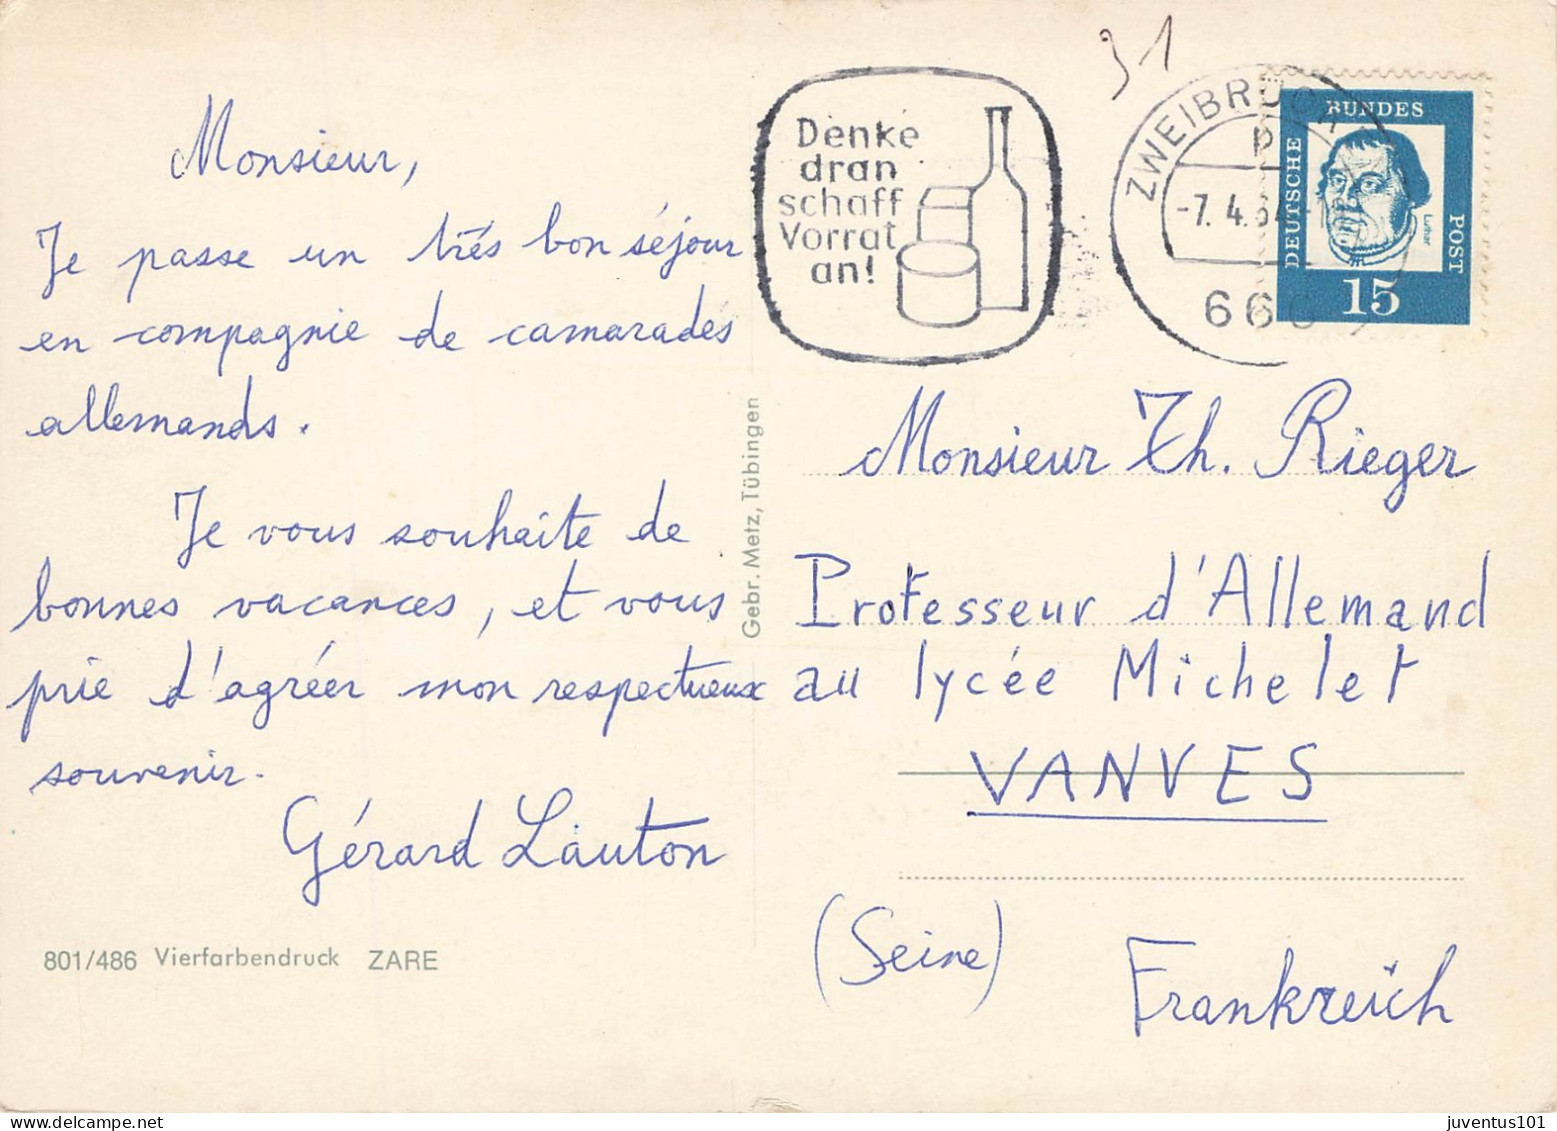 Monsieur,
Je passe un très bon séjour
en compagnie de camarades
allemands.
Je vous souhaite de
bonnes vacances, et vous
prie d'agréer mon respectueux
souvenir.
Gérard Lauton
801/486 Vierfarbendruck ZARE
Gebr. Metz, Tübingen
Denke
dran
schaff
Vorrat
an!
31
-7. 4. 64
DEUTSCHE
BUNDES
POST
Luther
15
Monsieur Th. Rieger
Professeur d'Allemand
au lycée Michelet
VANVES
(Seine)
Frankreich
juventus101